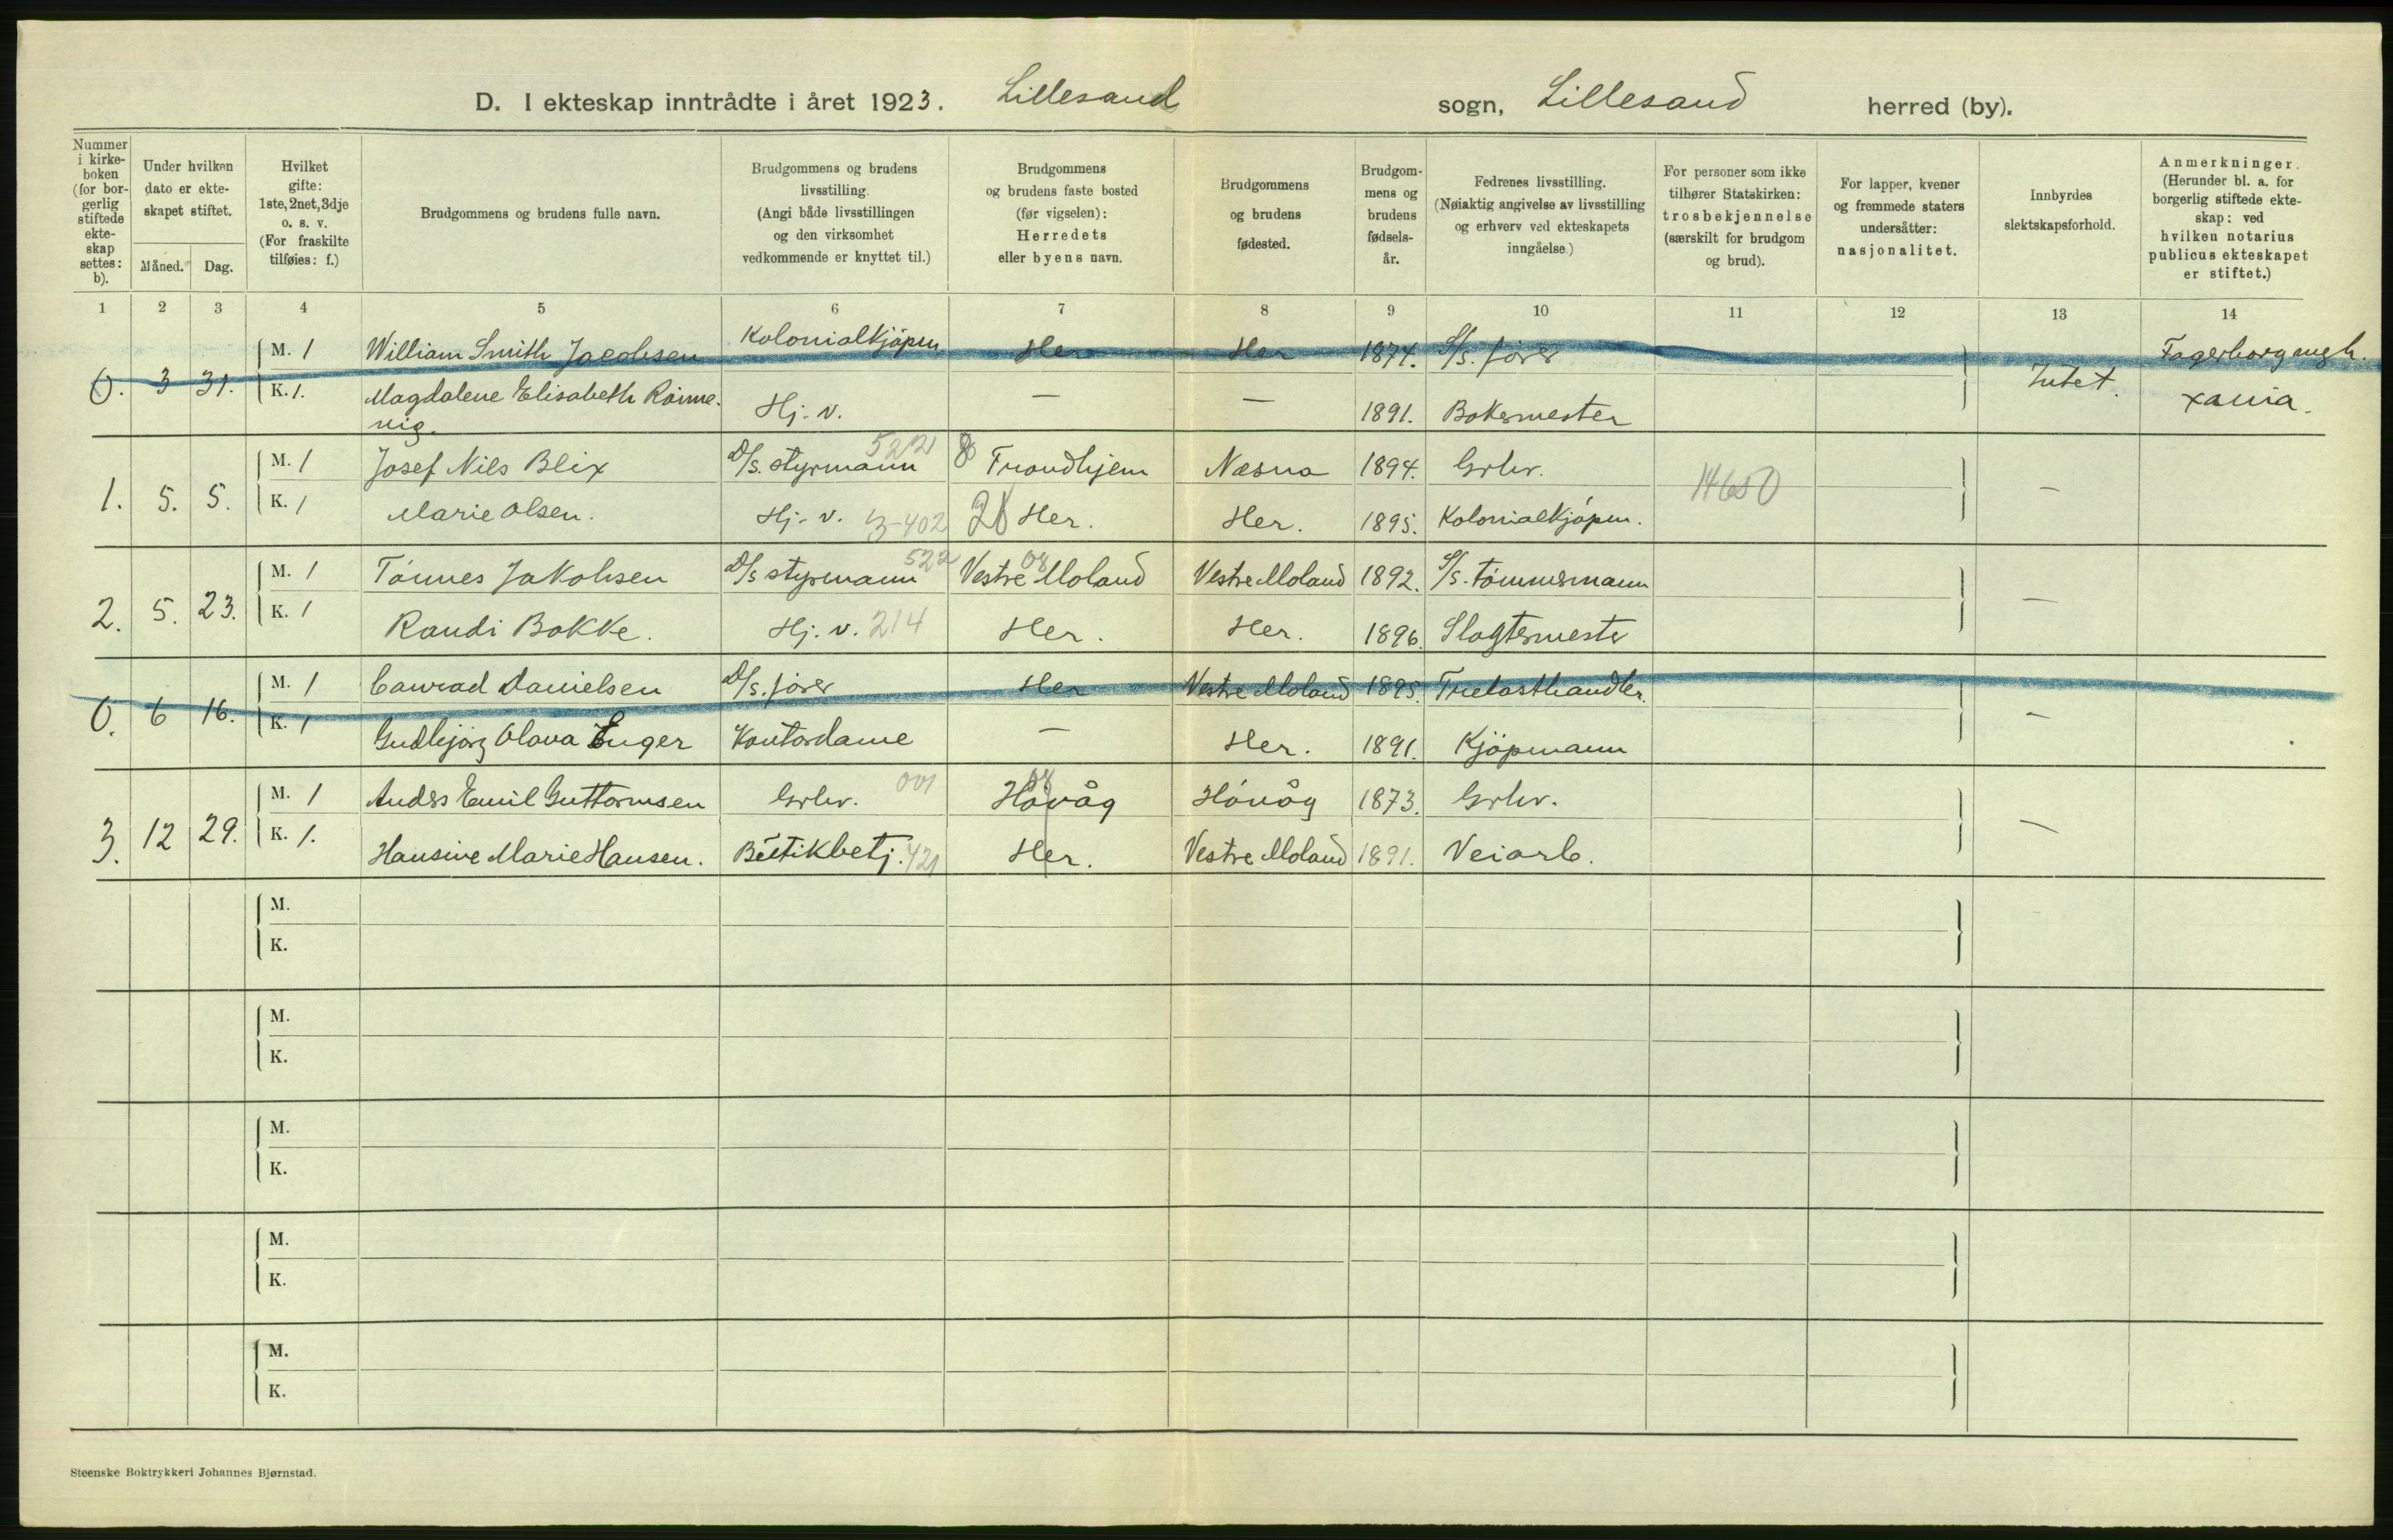 D. I ekteskap inntrådte i året 1923. Lillesand sogn, Lillesand herred (by).
Nummer i kirkeboken (for borgerlig stiftede ekteskap settes: b).
Under hvilken dato er ekteskapet stiftet.
Måned. Dag.
Hvilket gifte: 1ste, 2net, 3dje o. s. v. (For fraskilte tilføies: f.)
Brudgommens og brudens fulle navn.
Brudgommens og brudens livsstilling. (Angi både livsstillingen og den virksomhet vedkommende er knyttet til.)
Brudgommens og brudens faste bosted (før vigselen): Herredets eller byens navn.
Brudgommens og brudens fødested.
Brudgommens og brudens fødsels-år.
Fedrenes livsstilling. (Nøiaktig angivelse av livsstilling og erhverv ved ekteskapets inngåelse.)
For personer som ikke tilhører Statskirken: trosbekjennelse (særskilt for brudgom og brud).
For lapper, kvener og fremmede staters undersåtter: nasjonalitet.
Innbyrdes slektskapsforhold.
Anmerkninger. (Herunder bl. a. for borgerlig stiftede ekteskap: ved hvilken notarius publicus ekteskapet er stiftet.)
1 2 3 4 5 6 7 8 9 10 11 12 13 14
M. 1 William Smith Jacobsen Kolonialkjöpm. Her Her 1874. S/s. förer Fagerborg mgh.
0. 3 31. K. 1. Magdalene Elisabeth Rönne- Hj. v. — — 1891. Bokermester Intet. xania.
vig.
M. 1 Josef Nils Blix D/s. styrmann 522 8 Trondhjem Næsna 1894. Grbr. 14650
1. 5. 5. K. 1 Marie Olsen. Hj. v. 13-402 Her. Her. 1895. Kolonialkjöpm. —
M. 1 Tönnes Jakobsen D/s styrmann 522 Vestre Moland 08 Vestre Moland 1892. S/s. tömmermann
2. 5. 23. K. 1 Randi Bakke. Hj. v. 214 Her. Her. 1896. Slagtermester —
M. 1 Conrad Danielsen D/s. förer Her Vestre Moland 1895. Trelasthandler.
0. 6 16. K. 1 Gudbjörg Olava Enger Kontordame — Her. 1891. Kjöpmann —
M. 1 Anders Emil Guttormsen Grbr. 001 Hövåg 08 Hövåg 1873. Grbr.
3. 12 29. K. 1. Hansine Marie Hansen. Butikbetj. 421 Her. Vestre Moland 1891. Veiarb. —
M.
K.
M.
K.
M.
K.
M.
K.
M.
K.
Steenske Boktrykkeri Johannes Bjørnstad.